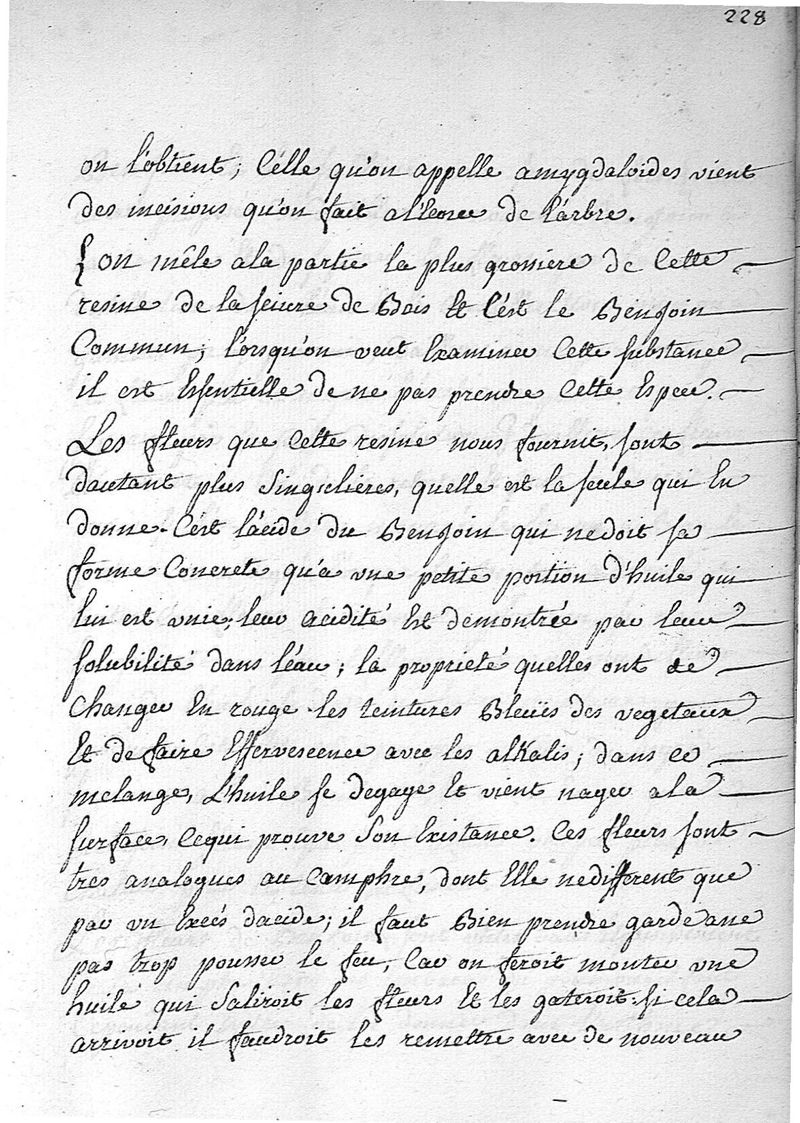 228
on l'obtient; Célle qu'on appelle amygdaloides vient
des incisions qu'on fait a l'écorce de l'arbre.
L'on mêle ala partie la plus grossiere de Cette
resine de la sciure de Bois Et C'ést le Benjoin
Commun; l'orsqu'on veut Examiner Cette substance
il est Essentielle de ne pas prendre Cette Espece.
Les fleurs que Cette resine nous fournit, sont
dautant plus Singulières, quelle est la seule qui En
donne. C'ést l'ácide du Benjoin qui ne doit sa
forme Concrete qu'a une petite portion d'huile qui
lui est unie; leur acidité Est demontrée par leur
solubilité dans l'éau; la proprieté quelles ont de
Changer En rouge les teintures Bleuës des vegetaux
Et de faire Effervescence avec les alKalis; dans ce
melange, L'huile se degage Et vient nager a la
surface, Cequi prouve Son Existance. Ces fleurs sont
tres analogues au Camphre, dont Elle nedifferent que
par un Excés dacide; il faut Bien prendre garde ane
pas trop pousser le feu, Car on feroit monter une
huile qui Saliroit les fleurs Et les gateroit. si cela
arrivoit il faudroit les remettre avec de nouveau